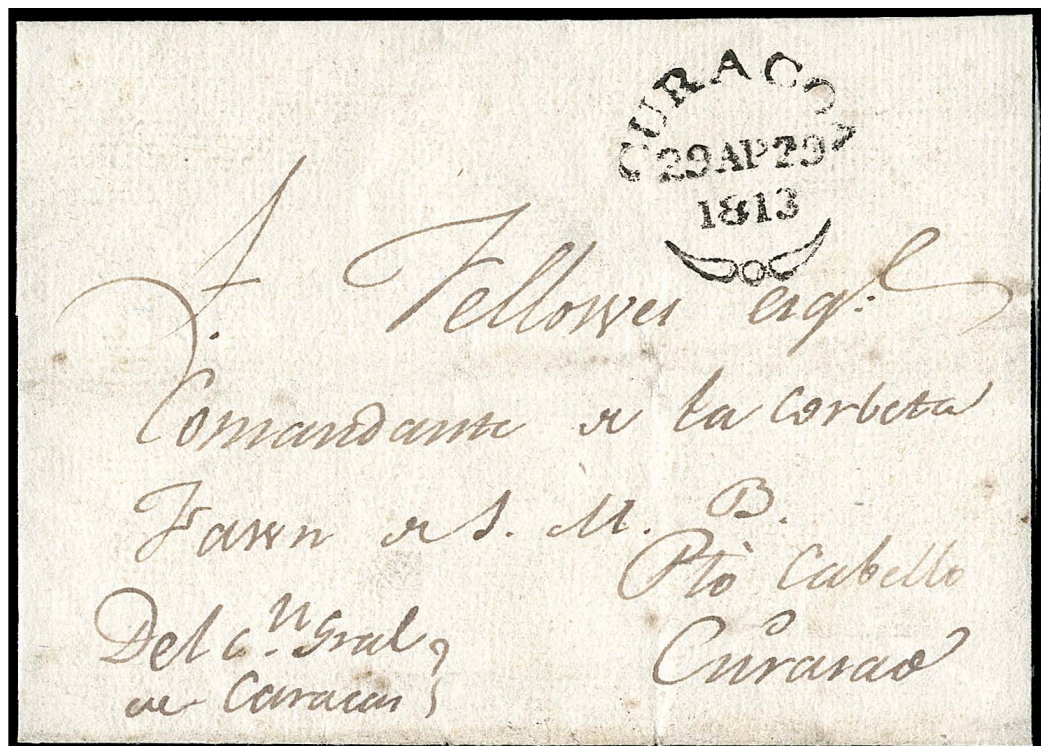 CURACOA
29AP29
1813
A. Fellowes esqr.
Comandante de la corbeta
Fawn de S. M. B.
Pto Cabello
Curacao
Del Cn. Gral
de Caracas